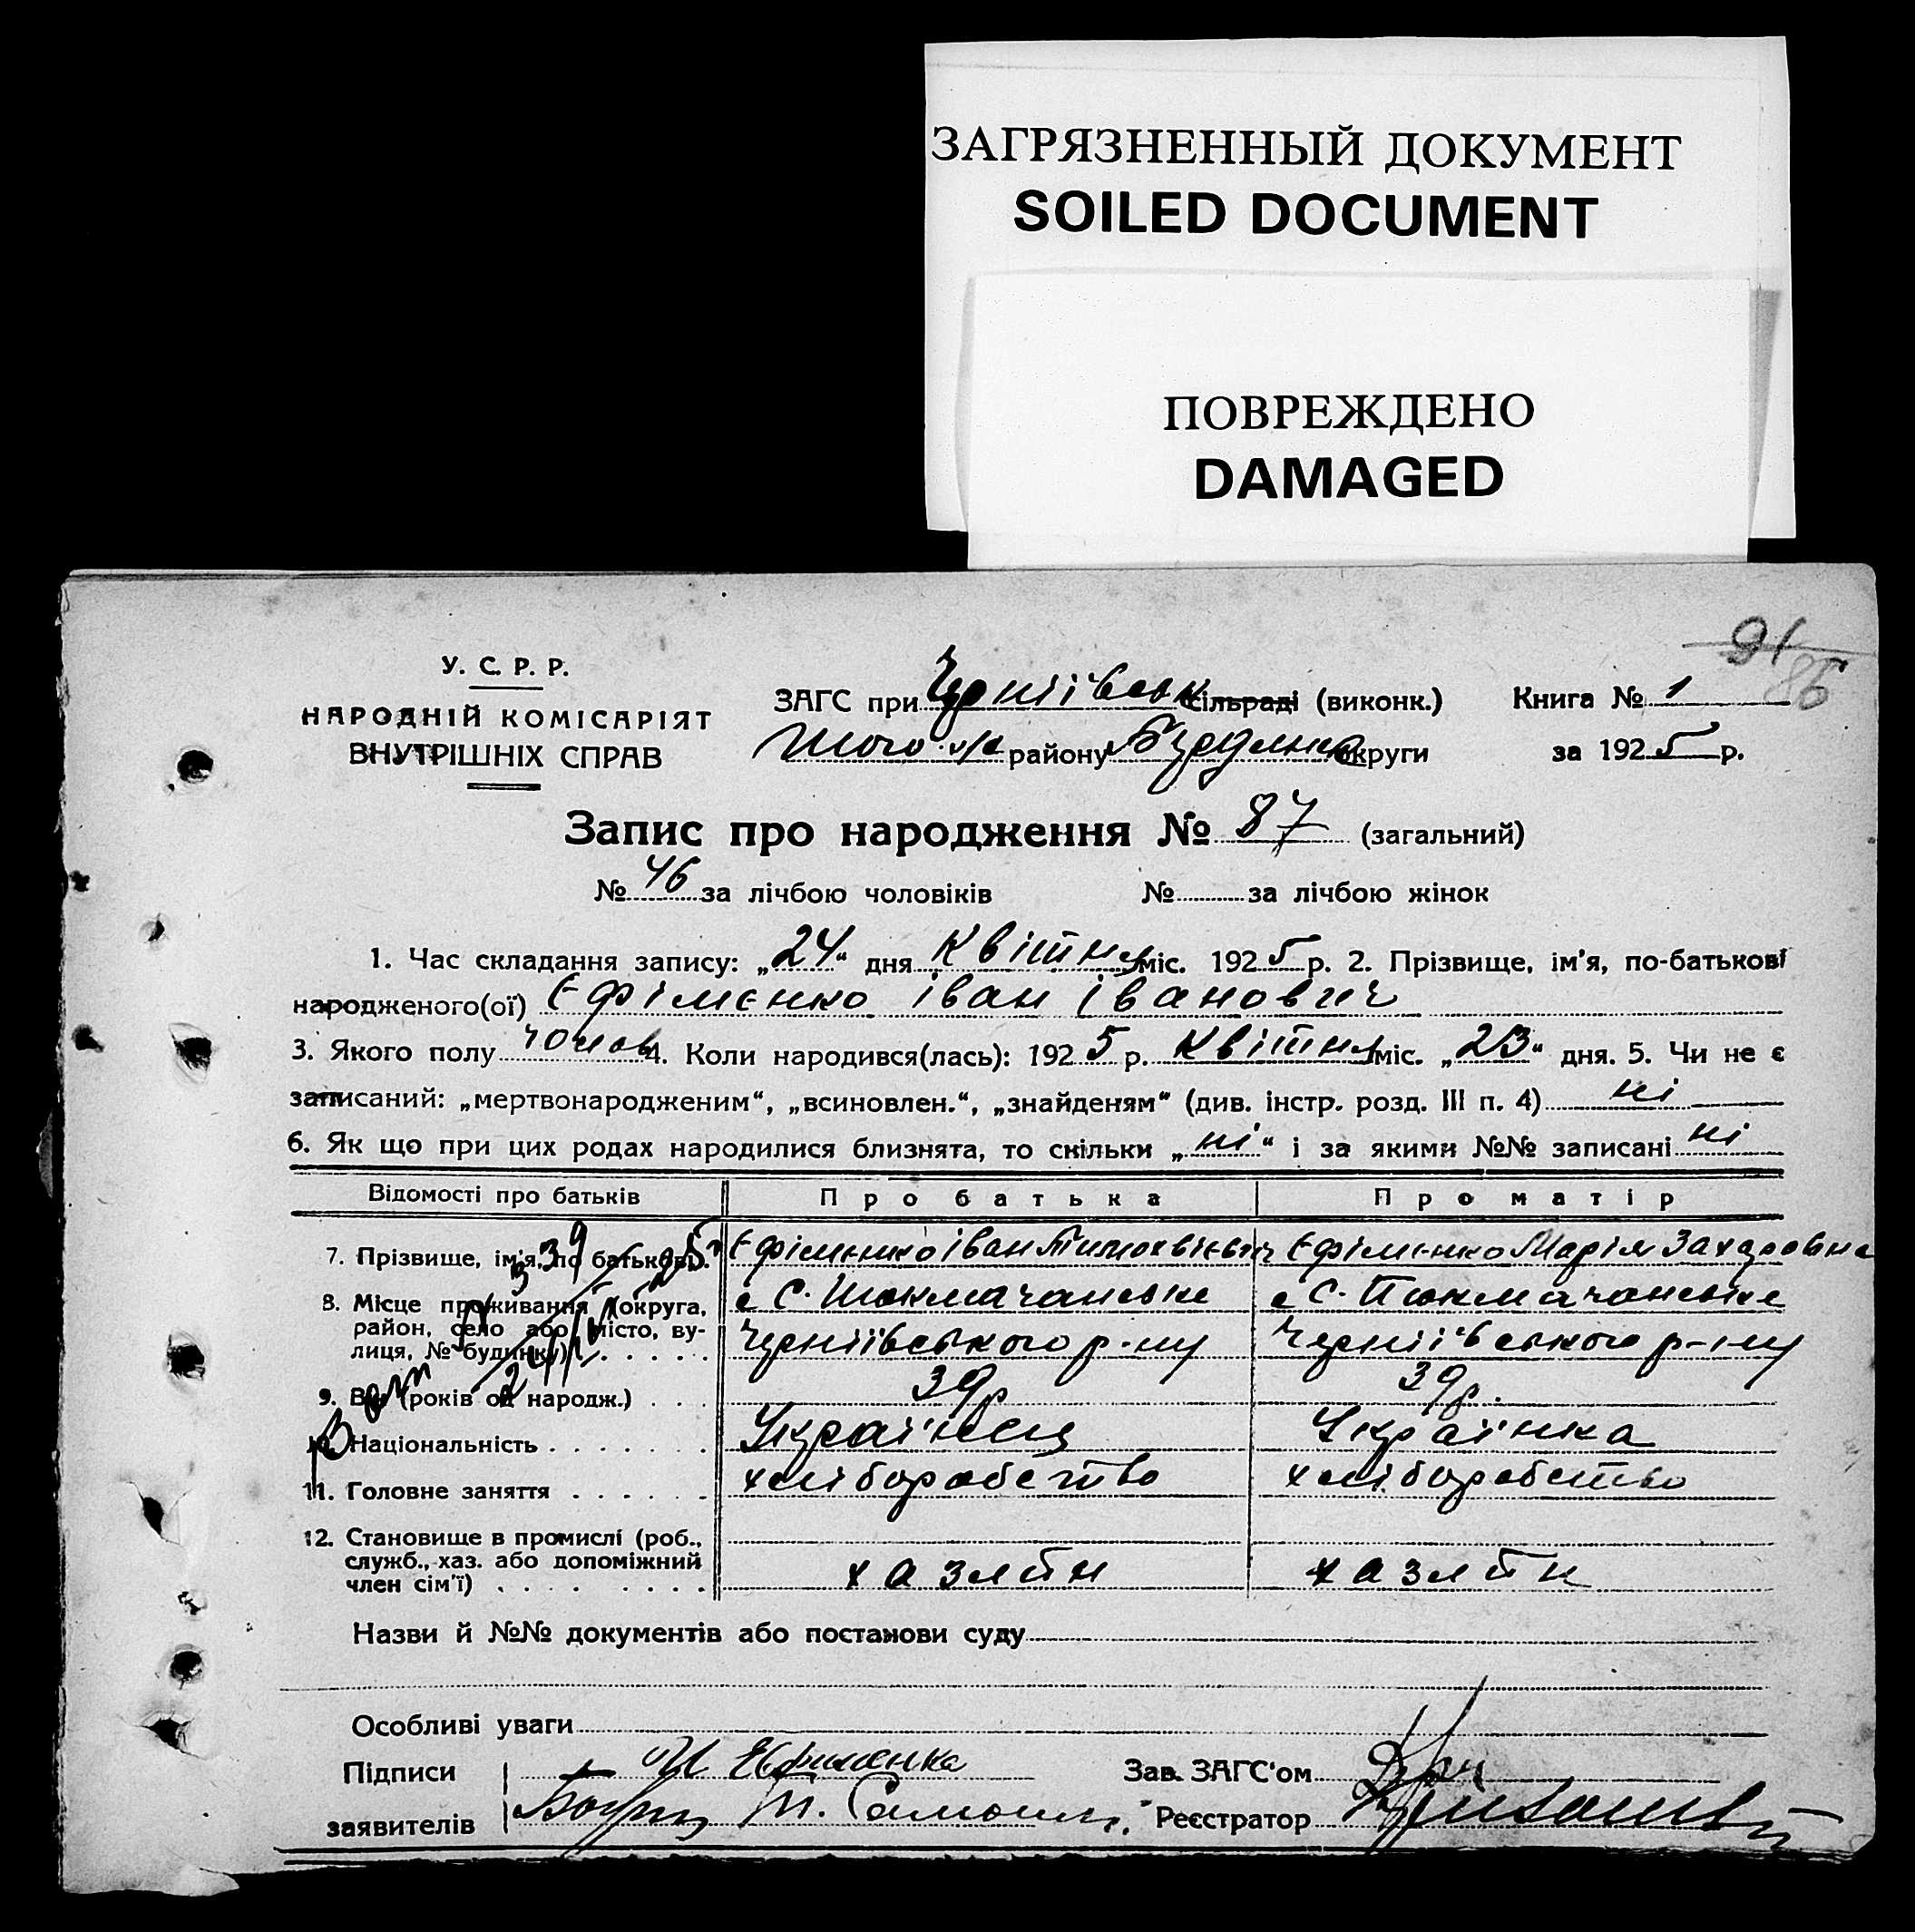 ЗАГРЯЗНЕННЫЙ ДОКУМЕНТ
SOILED DOCUMENT
ПОВРЕЖДЕНО
DAMAGED
91
86
У. С. Р. Р.
НАРОДНІЙ КОМІСАРІЯТ
ВНУТРІШНІХ СПРАВ
ЗАГС при сільраді (виконк.) Книга № 1
району округи за 1925 р.
Запис про народження № 87 (загальний)
№ 46 за лічбою чоловіків № за лічбою жінок
1. Час складання запису: „24“ дня Квітня міс. 1925 р. 2. Прізвище, ім’я, по-батькові
народженого(ої) Єфіменко Іван Іванович
3. Якого полу чолов 4. Коли народився(лась): 1925 р. Квітня міс. „23“ дня. 5. Чи не є
записаний: „мертвонародженим“, „всиновлен.“, „знайденям“ (див. інстр. розд. III п. 4) ні
6. Як що при цих родах народилися близнята, то скільки „ні“ і за якими №№ записані ні
Відомості про батьків Про батька Про матір
7. Прізвище, ім’я, по батькові. Єфіменко Іван Єфіменко Марія Захаровна
8. Місце проживання (округа,
район, село або місто, ву-
лиця, № будинку) с. с.
Черніївського р-ну Черніївського р-ну
9. Вік (років од народж.) 39 р 39 р.
10. Національність Українець Українка
11. Головне заняття хліборобство хліборобство
12. Становище в промислі (роб.,
служб., хаз. або допоміжний
член сім’ї) хазяїн хазяїн
Назви й №№ документів або постанови суду
Особливі уваги
Підписи Зав. ЗАГС’ом
заявителів Реєстратор